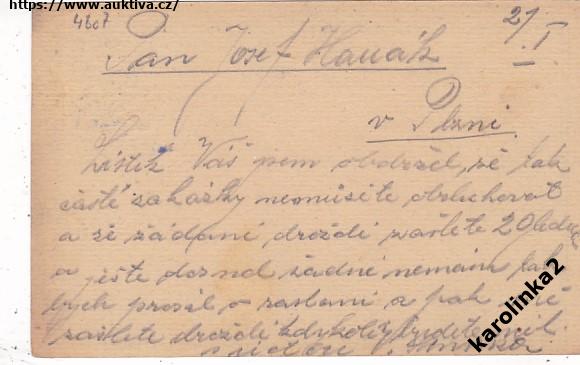 https://www.auktiva.cz/
4807
21/I
Pan Josef Hanák
v Plzni
Lístek Váš jsem obdržel, že tak
časté zakázky nemůžete obsluhovat
a že žádané droždí zašlete 20 ledna
a ještě dosud žádné nemám tak
bych prosil o zaslaní a pak
zašlete droždí kdykoliv budete
karolinka2